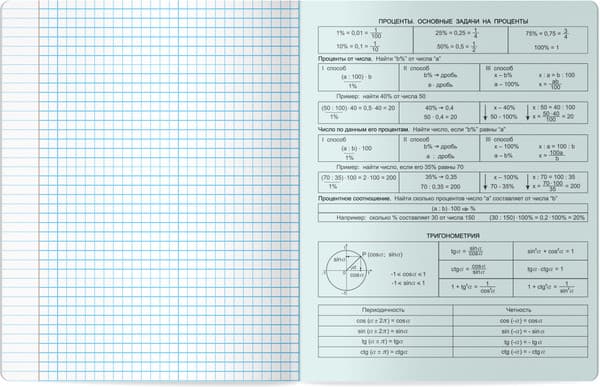 ПРОЦЕНТЫ. ОСНОВНЫЕ ЗАДАЧИ НА ПРОЦЕНТЫ
1% = 0,01 = 1/100 25% = 0,25 = 1/4 75% = 0,75 = 3/4
10% = 0,1 = 1/10 50% = 0,5 = 1/2 100% = 1
Проценты от числа. Найти "b%" от числа "a"
I способ II способ III способ
(a : 100) · b b% ➔ дробь x – b% x : a = b : 100
1% a · дробь a – 100% x = ab/100
Пример: найти 40% от числа 50
(50 : 100) · 40 = 0,5 · 40 = 20 40% ➔ 0,4 x – 40% x : 50 = 40 : 100
1% 50 · 0,4 = 20 50 - 100% x = 50·40/100 = 20
Число по данным его процентам. Найти число, если "b%" равны "a"
I способ II способ III способ
(a : b) · 100 b% ➔ дробь x – 100% x : a = 100 : b
1% a : дробь a – b% x = 100a/b
Пример: найти число, если его 35% равны 70
(70 : 35) · 100 = 2 · 100 = 200 35% ➔ 0,35 x – 100% x : 70 = 100 : 35
1% 70 : 0,35 = 200 70 - 35% x = 70·100/35 = 200
Процентное соотношение. Найти сколько процентов число "a" составляет от числа "b"
(a : b) · 100 ➔ %
Например: сколько % составляет 30 от числа 150 (30 : 150) · 100% = 0,2 · 100% = 20%
ТРИГОНОМЕТРИЯ
P (cosα; sinα)
sinα
cosα
-1 < cosα < 1
-1 < sinα < 1
tgα = sinα/cosα sin²α + cos²α = 1
ctgα = cosα/sinα tgα · ctgα = 1
1 + tg²α = 1/cos²α 1 + ctg²α = 1/sin²α
Периодичность Четность
cos (α ± 2π) = cosα cos (-α) = cosα
sin (α ± 2π) = sinα sin (-α) = - sinα
tg (α ± π) = tgα tg (-α) = - tgα
ctg (α ± π) = ctgα ctg (-α) = - ctgα